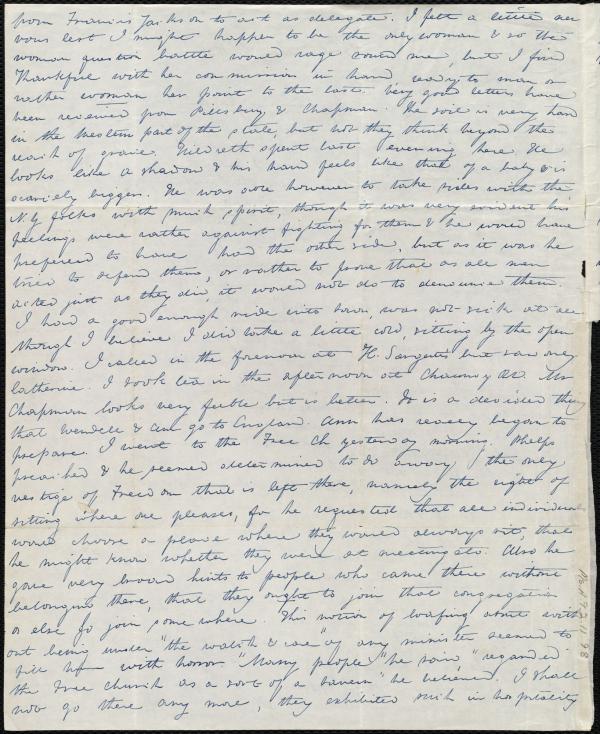 from Francis Jackson to act as delegate. I felt a little ner
vous lest I might happen to be the only woman & so the
woman question battle would rage round me, but I find
Thankful with her commission in hand, ready to man or
rather woman her point to the last. Very good letters have
been received from Pillsbury & Chapman. The soil is very hard
in the Western part of the state, but not they think beyond the
reach of grace. Hildreth spent last evening here. He
looks like a shadow & his hand feels like that of a baby & is
scarcely bigger. He was able however to take sides with the
N.Y. folks with much spirit, though it was very evident his
feelings were rather against fighting for them & he would have
preferred to have had the other side, but as it was he
tried to defend them, or rather to prove that as all men
acted just as they did, it would not do to denounce them.
I had a good enough ride into town, was not sick at all
though I believe I did take a little cold sitting by the open
window. I called in the forenoon at H. Sargents but saw only
Catherine. I took tea in the afternoon at Chauncy St. Mr
Chapman looks very feeble but is better. It is a decided thing
that Wendell & Ann go to England. Ann has really begun to
prepare. I went to the Free Ch yesterday morning. Phelps
preached & he seemed determined to do away the only
vestige of Freedom that is left there, namely the right of
sitting where one pleases, for he requested that all individuals
would choose a place where they would always sit, that
he might know whether they were at meeting &c. Also he
gave very broad hints to people who came there without
belonging there, that they ought to join that congregation
or else go join some where. This notion of loafing about with
out being under "the watch & care" of any minister seemed to
fill him with horror "Many people" he said, "regarded
the Free church as a sort of a tavern" he believed. I shall
not go there any more, they exhibited such in hospitality